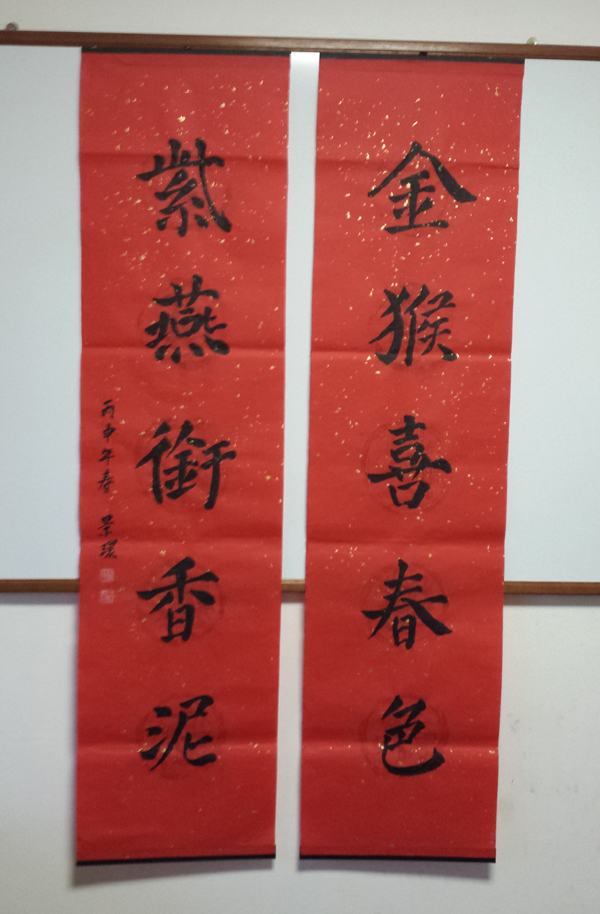 金猴喜春色
紫燕銜香泥
丙申年春 景環